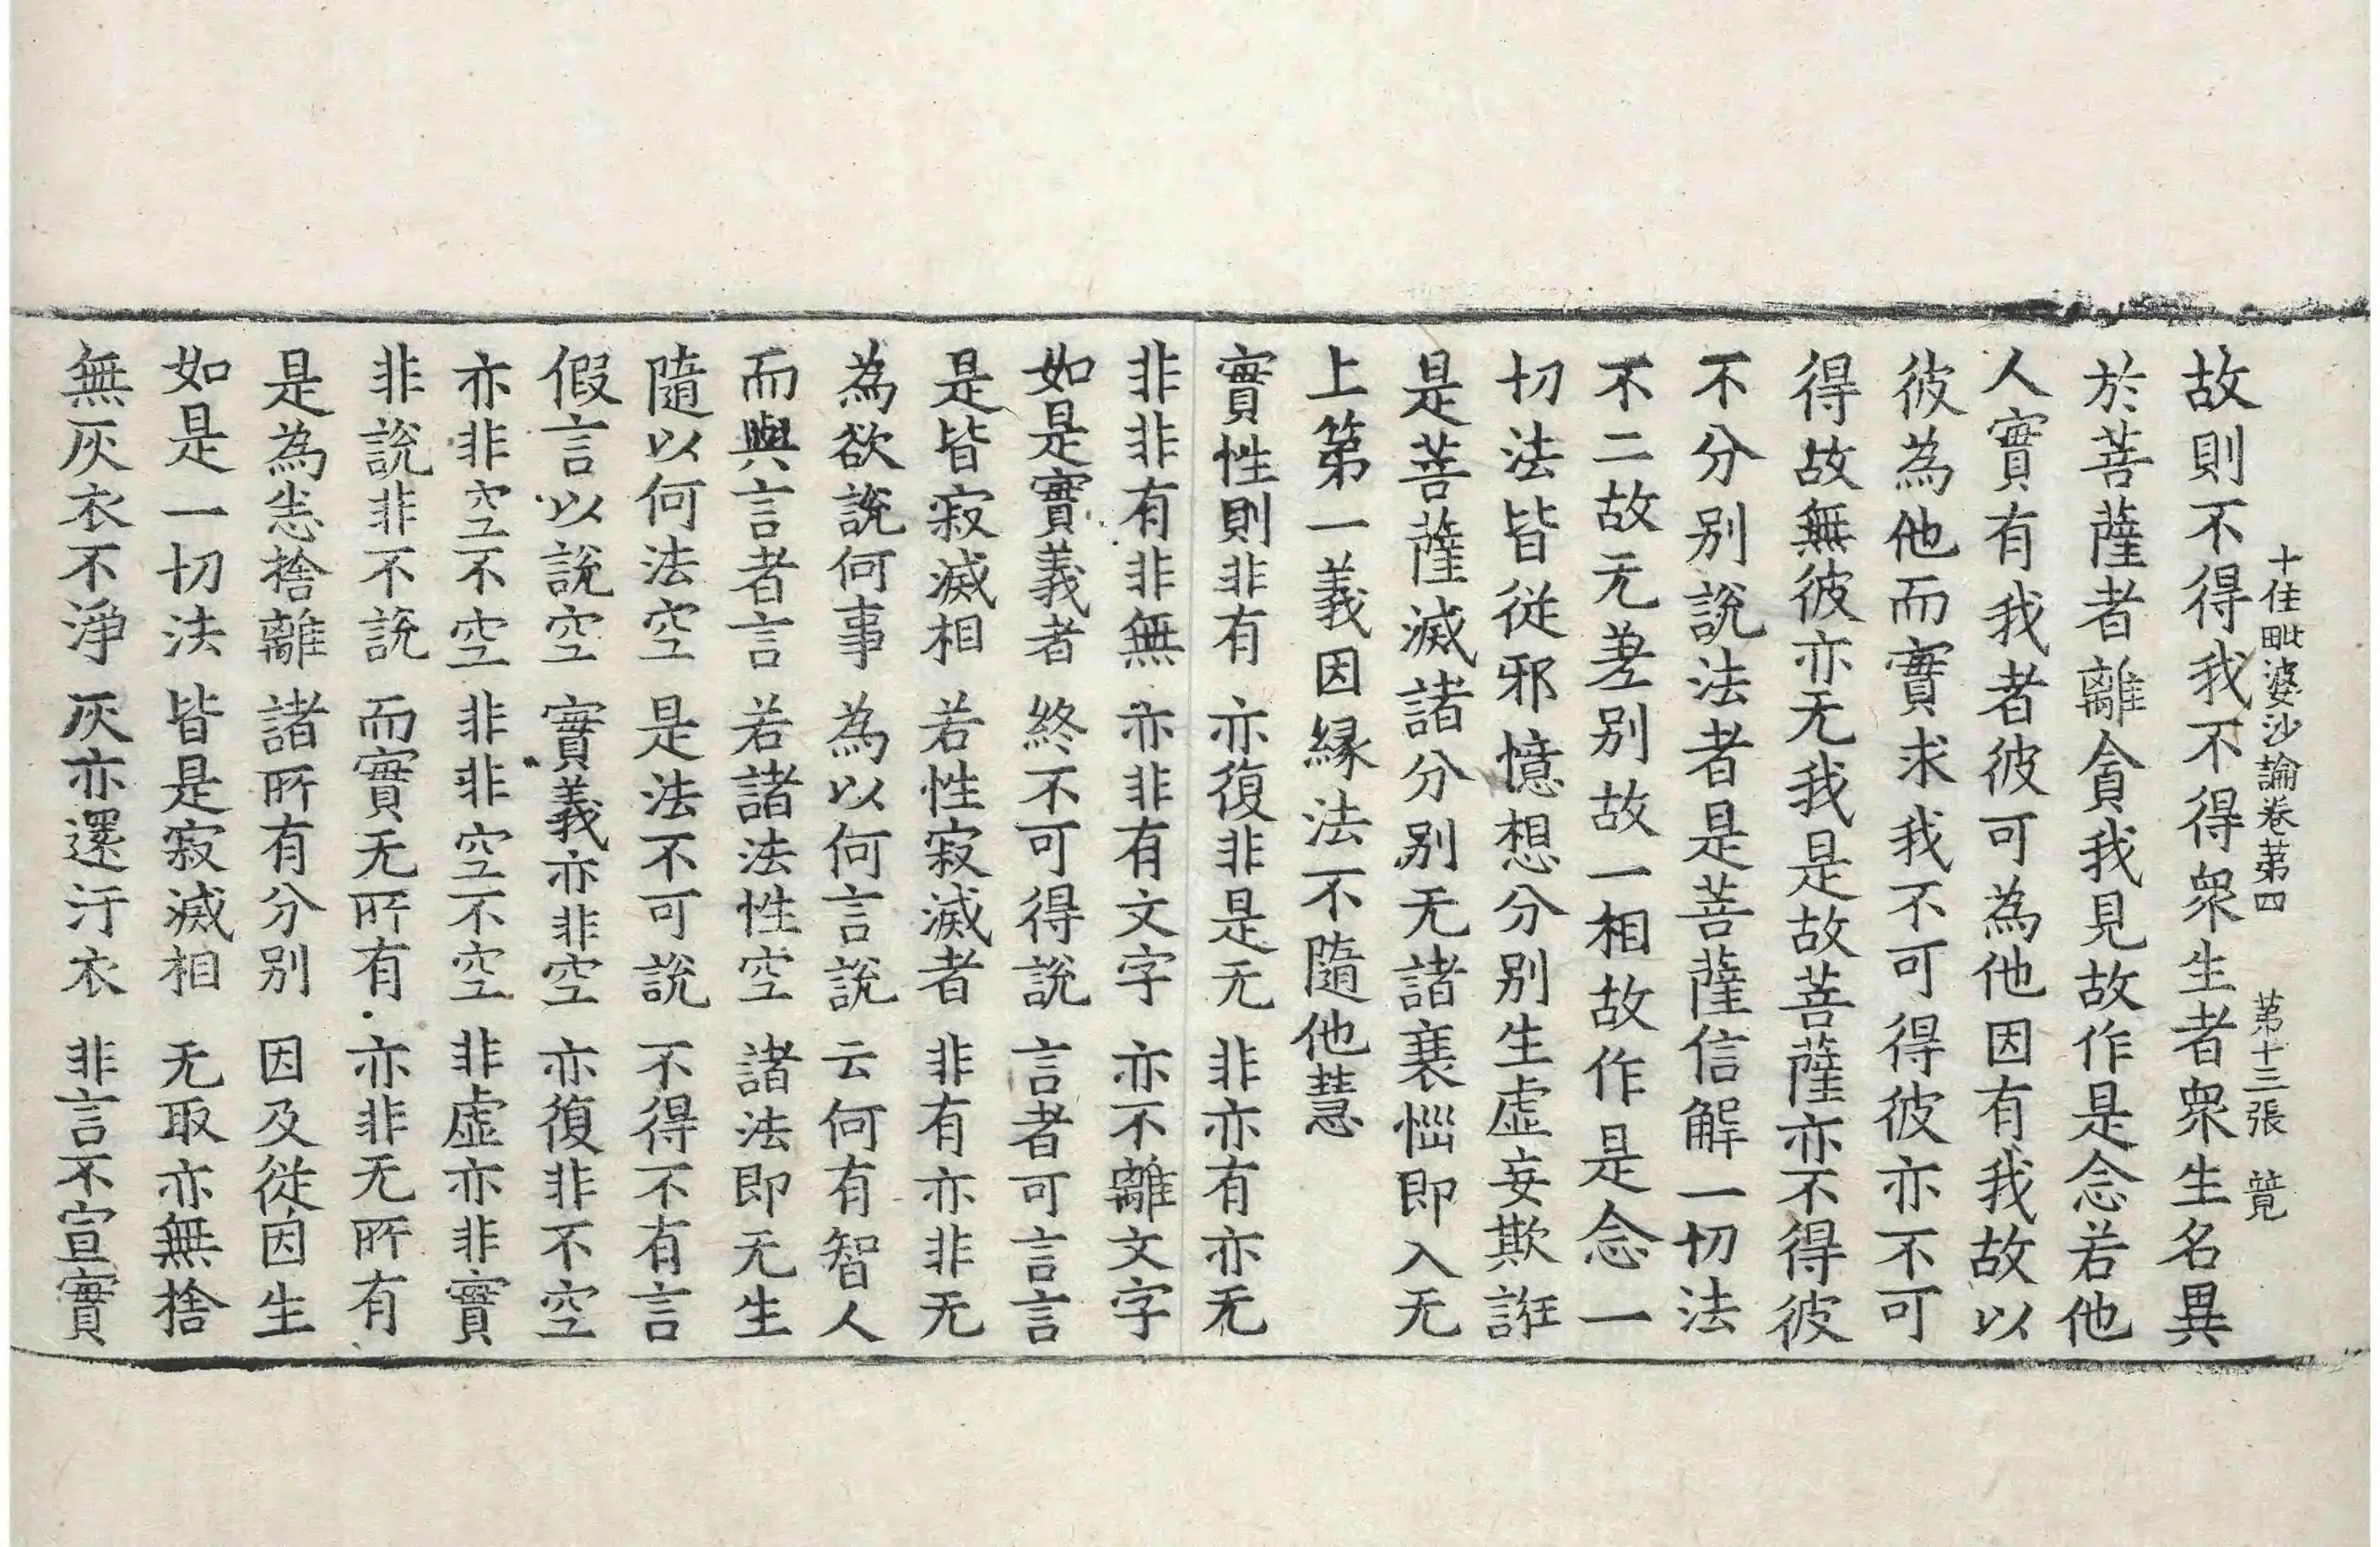 十住毗婆沙論卷苐四　苐十三張　䇹
故則不得我不得衆生者衆生名異
於菩薩者離貪我見故作是念若他
人實有我者彼可為他因有我故以
彼為他而實求我不可得彼亦不可
得故無彼亦无我是故菩薩亦不得彼
不分別說法者是菩薩信解一切法
不二故无差別故一相故作是念一
切法皆從邪憶想分別生虛妄欺誑
是菩薩滅諸分別无諸衰惱即入无
上第一義因緣法不隨他慧
實性則非有　亦復非是无　非亦有亦无
非非有非無　亦非有文字　亦不離文字
如是實義者　終不可得說　言者可言言
是皆寂滅相　若性寂滅者　非有亦非无
為欲說何事　為以何言說　云何有智人
而與言者言　若諸法性空　諸法即无生
隨以何法空　是法不可說　不得不有言
假言以說空　實義亦非空　亦復非不空
亦非空不空　非非空不空　非虛亦非實
非說非不說　而實无所有　亦非无所有
是為悉捨離　諸所有分別　因及從因生
如是一切法　皆是寂滅相　无取亦無捨
無灰衣不淨　灰亦還汙衣　非言不宣實